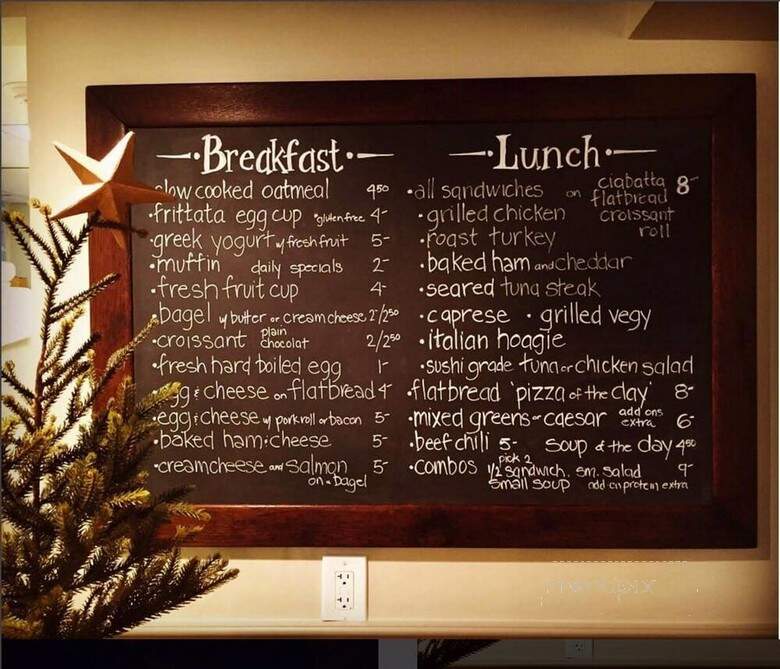 Breakfast
slow cooked oatmeal 4⁵⁰
•frittata egg cup *gluten free 4-
•greek yogurt w/ fresh fruit 5-
•muffin daily specials 2-
•fresh fruit cup 4-
•bagel w/ butter or cream cheese 2-/2⁵⁰
•croissant plain chocolat 2/2⁵⁰
•fresh hard boiled egg 1-
egg & cheese on flatbread 4-
•egg & cheese w/ porkroll or bacon 5-
•baked ham & cheese 5-
•creamcheese and salmon 5-
on a bagel
Lunch
•all sandwiches on ciabatta flatbread croissant roll 8-
•grilled chicken
•roast turkey
•baked ham and cheddar
•seared tuna steak
•caprese • grilled vegy
•italian hoagie
•sushi grade tuna or chicken salad
•flatbread 'pizza of the day' 8-
•mixed greens or caesar add ons extra 6-
•beef chili 5- soup of the day 4⁵⁰
•combos pick 2 1/2 sandwich, sm. salad 9-
small soup add on protein extra